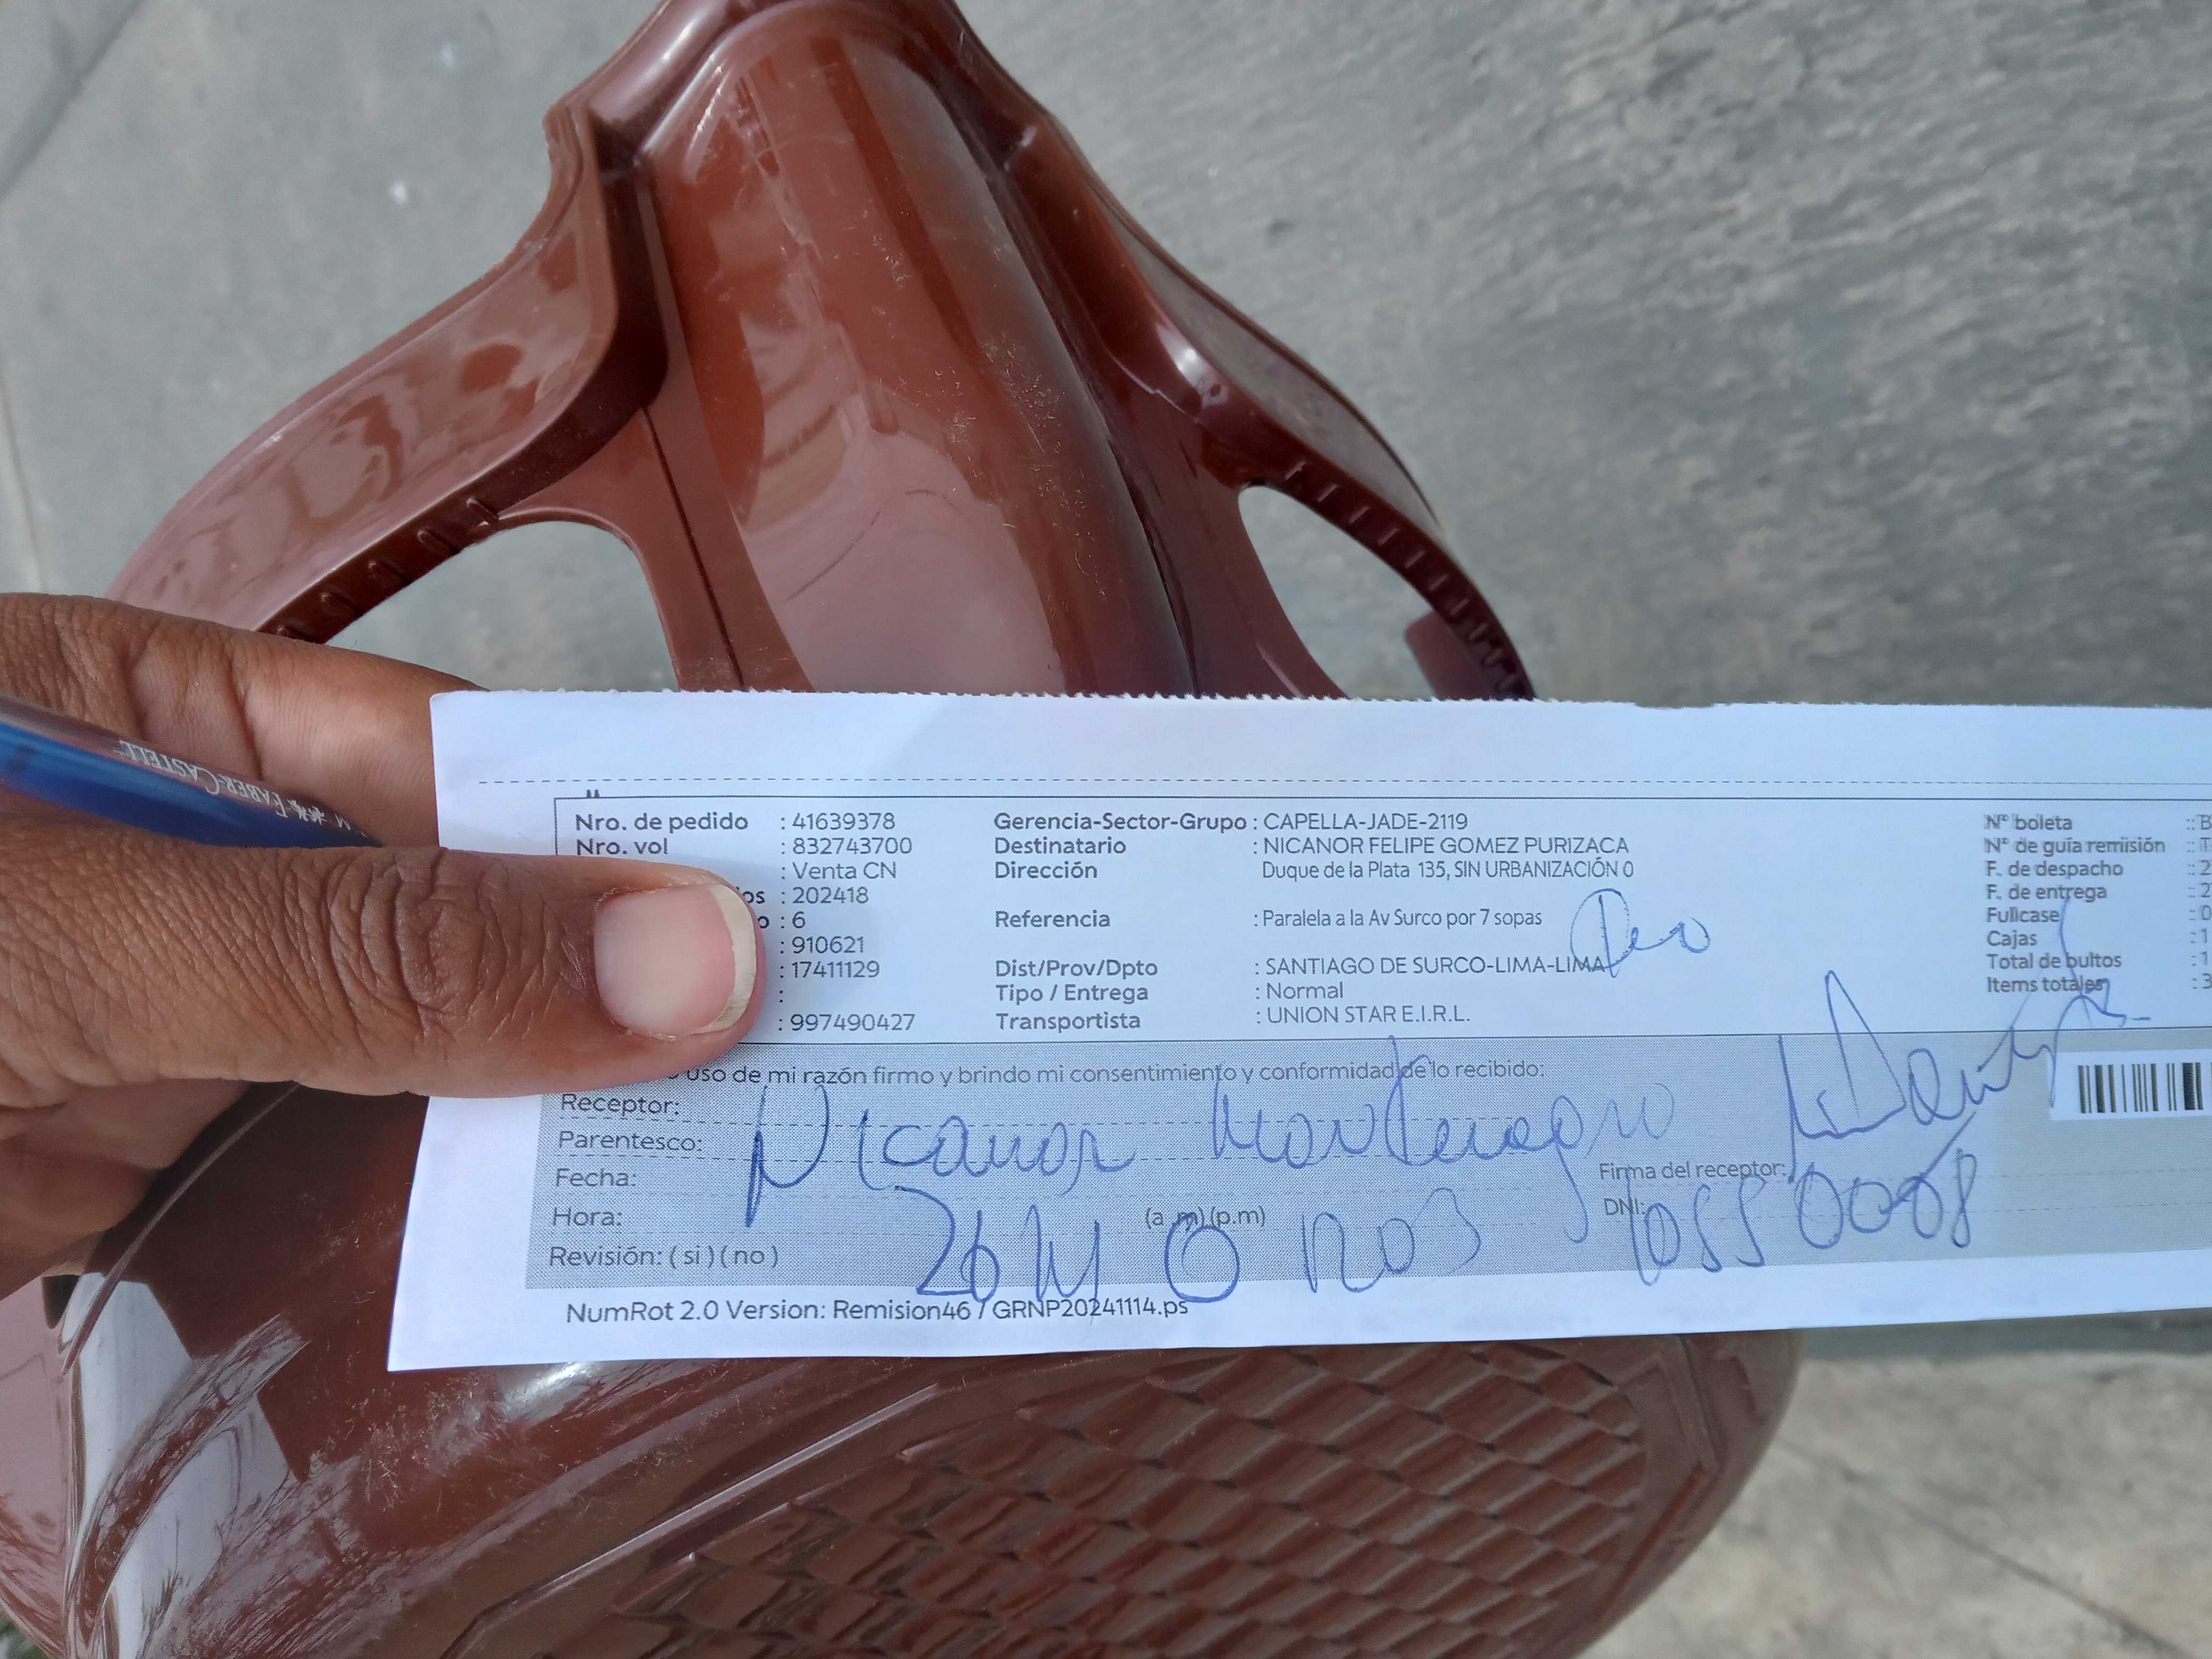 FABER-CASTELL M
Nro. de pedido : 41639378
Nro. vol : 832743700
: Venta CN
os : 202418
o : 6
: 910621
: 17411129
:
: 997490427
Gerencia-Sector-Grupo : CAPELLA-JADE-2119
Destinatario : NICANOR FELIPE GOMEZ PURIZACA
Dirección Duque de la Plata 135, SIN URBANIZACIÓN 0
Referencia : Paralela a la Av Surco por 7 sopas
Dist/Prov/Dpto : SANTIAGO DE SURCO-LIMA-LIMA
Tipo / Entrega : Normal
Transportista : UNION STAR E.I.R.L.
N° boleta : B
N° de guía remisión : T
F. de despacho : 2
F. de entrega : 2
Fullcase : 0
Cajas : 1
Total de bultos : 1
Items totales : 3
uso de mi razón firmo y brindo mi consentimiento y conformidad de lo recibido:
Receptor:
Parentesco: Nicanor Montenegro
Fecha:
Firma del receptor:
Hora: (a.m)(p.m)
DNI: 10550008
Revisión: ( si ) ( no )
NumRot 2.0 Version: Remision46 / GRNP20241114.ps